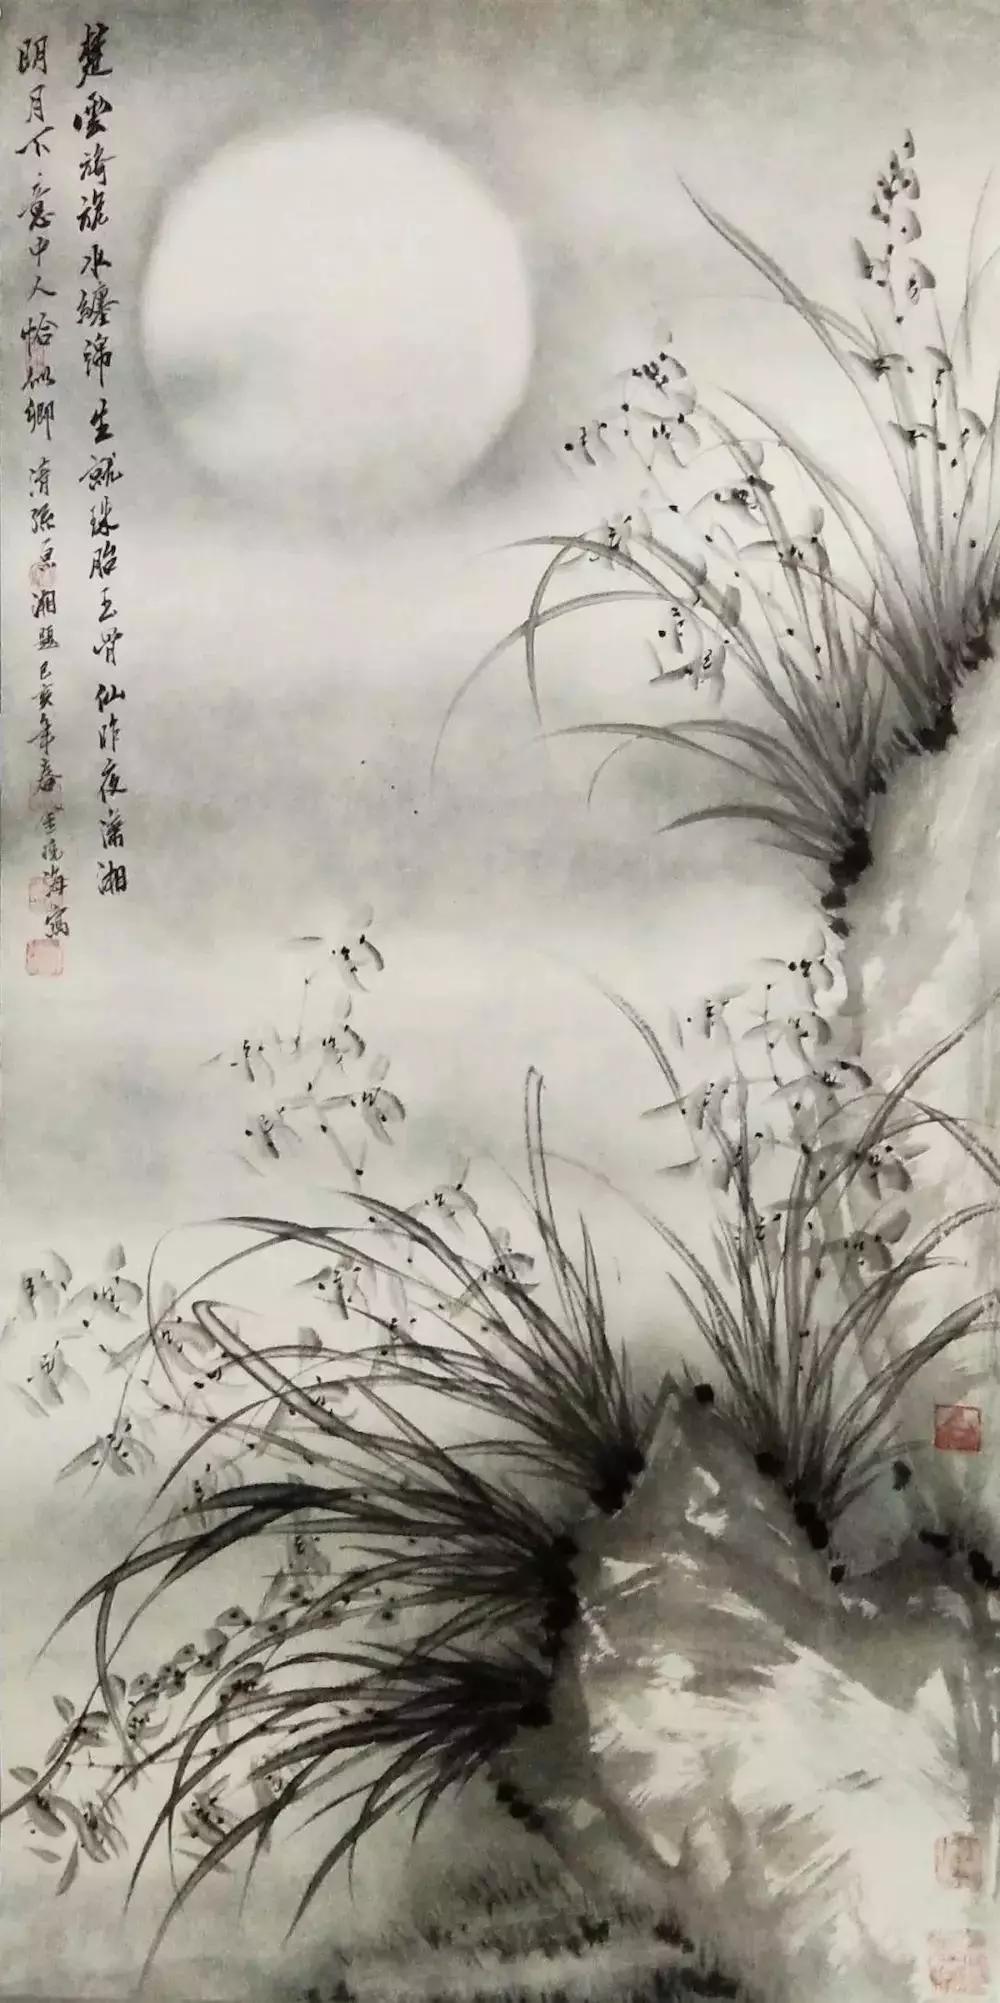 楚雲旖旎水纏綿生就珠胎玉骨仙昨夜瀟湘
明月下意中人恰似卿清孫原湘題己亥年春金晓海寫